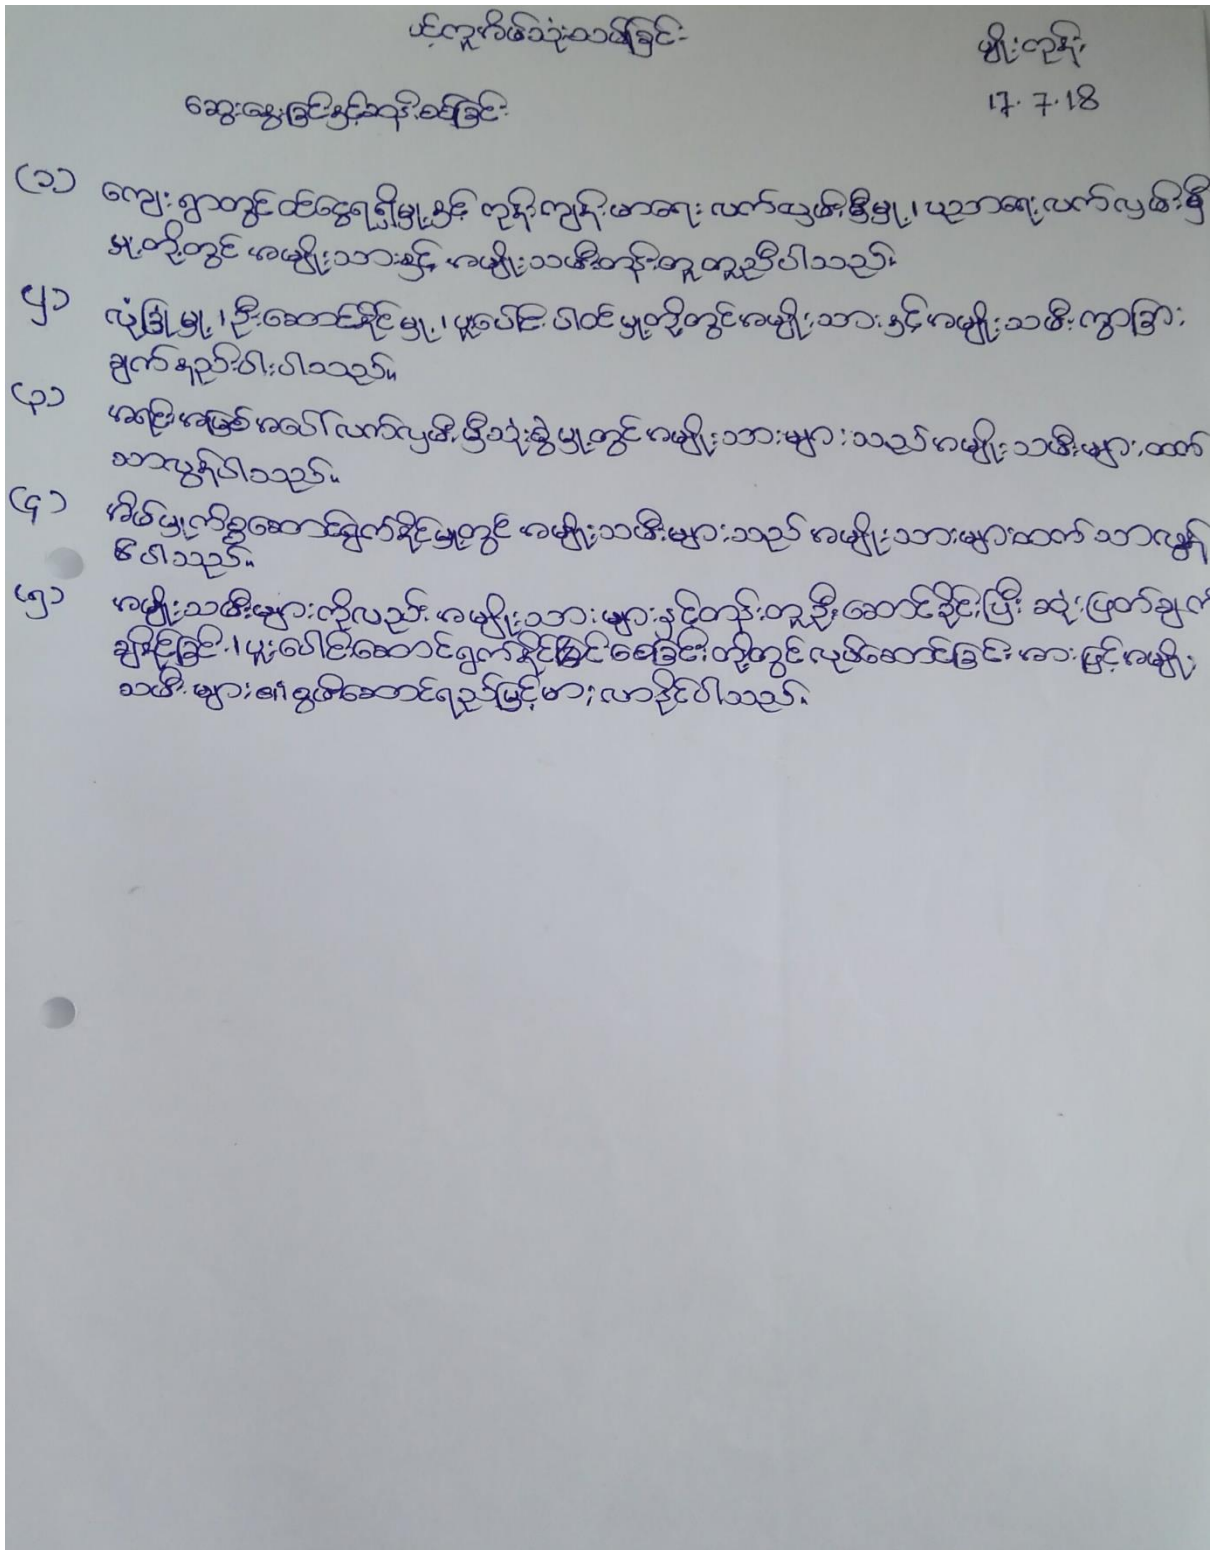 ပင့်ကူအိမ်သုံးသပ်ခြင်း
မျိုးတုန်း
ဆွေးနွေးခြင်းနှင့်ဆန်းစစ်ခြင်း
17.7.18
(၁) ကျေးရွာတွင်ဝင်ငွေရရှိမှု့နှင့် ကုန်းကျန်းမာရေးလက်လှမ်းမှီမှု့၊ ပညာရေးလက်လှမ်းမှီ
မှု့တို့တွင် အမျိုးသားနှင့် အမျိုးသမီးတန်းတူတူညီပါသည်။
၂) လုံခြုံမှု့၊ ဦးဆောင်နိုင်မှု့၊ ပူးပေါင်းပါဝင်မှု့တို့တွင်အမျိုးသားနှင့်အမျိုးသမီးကွာခြား
ချက်နည်းပါးပါသည်။
(၃) အရင်းအမြစ်အပေါ်လက်လှမ်းမှီသုံးစွဲမှု့တွင်အမျိုးသားများသည်အမျိုးသမီးများထက်
သာလွန်ပါသည်။
(၄) အိမ်မှုကိစ္စဆောင်ရွက်နိုင်မှု့တွင် အမျိုးသမီးများသည် အမျိုးသားများထက် သာလွန်
မိပါသည်။
(၅) အမျိုးသမီးများကိုလည်းအမျိုးသားများနှင့်တန်းတူဦးဆောင်ခိုင်းပြီး ဆုံးဖြတ်ချက်
ချနိုင်ခြင်း၊ ပူးပေါင်းဆောင်ရွက်နိုင်ခြင်းစေခြင်းတို့တွင်လုပ်ဆောင်ခြင်းအားဖြင့်အမျိုး
သမီးများ၏စွမ်းဆောင်ရည်မြင့်မားလာနိုင်ပါသည်။